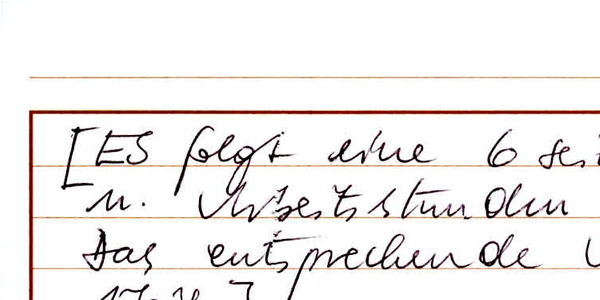 [ES folgt eine 6 sei
u. Arbeitsstunden
Das entsprechende